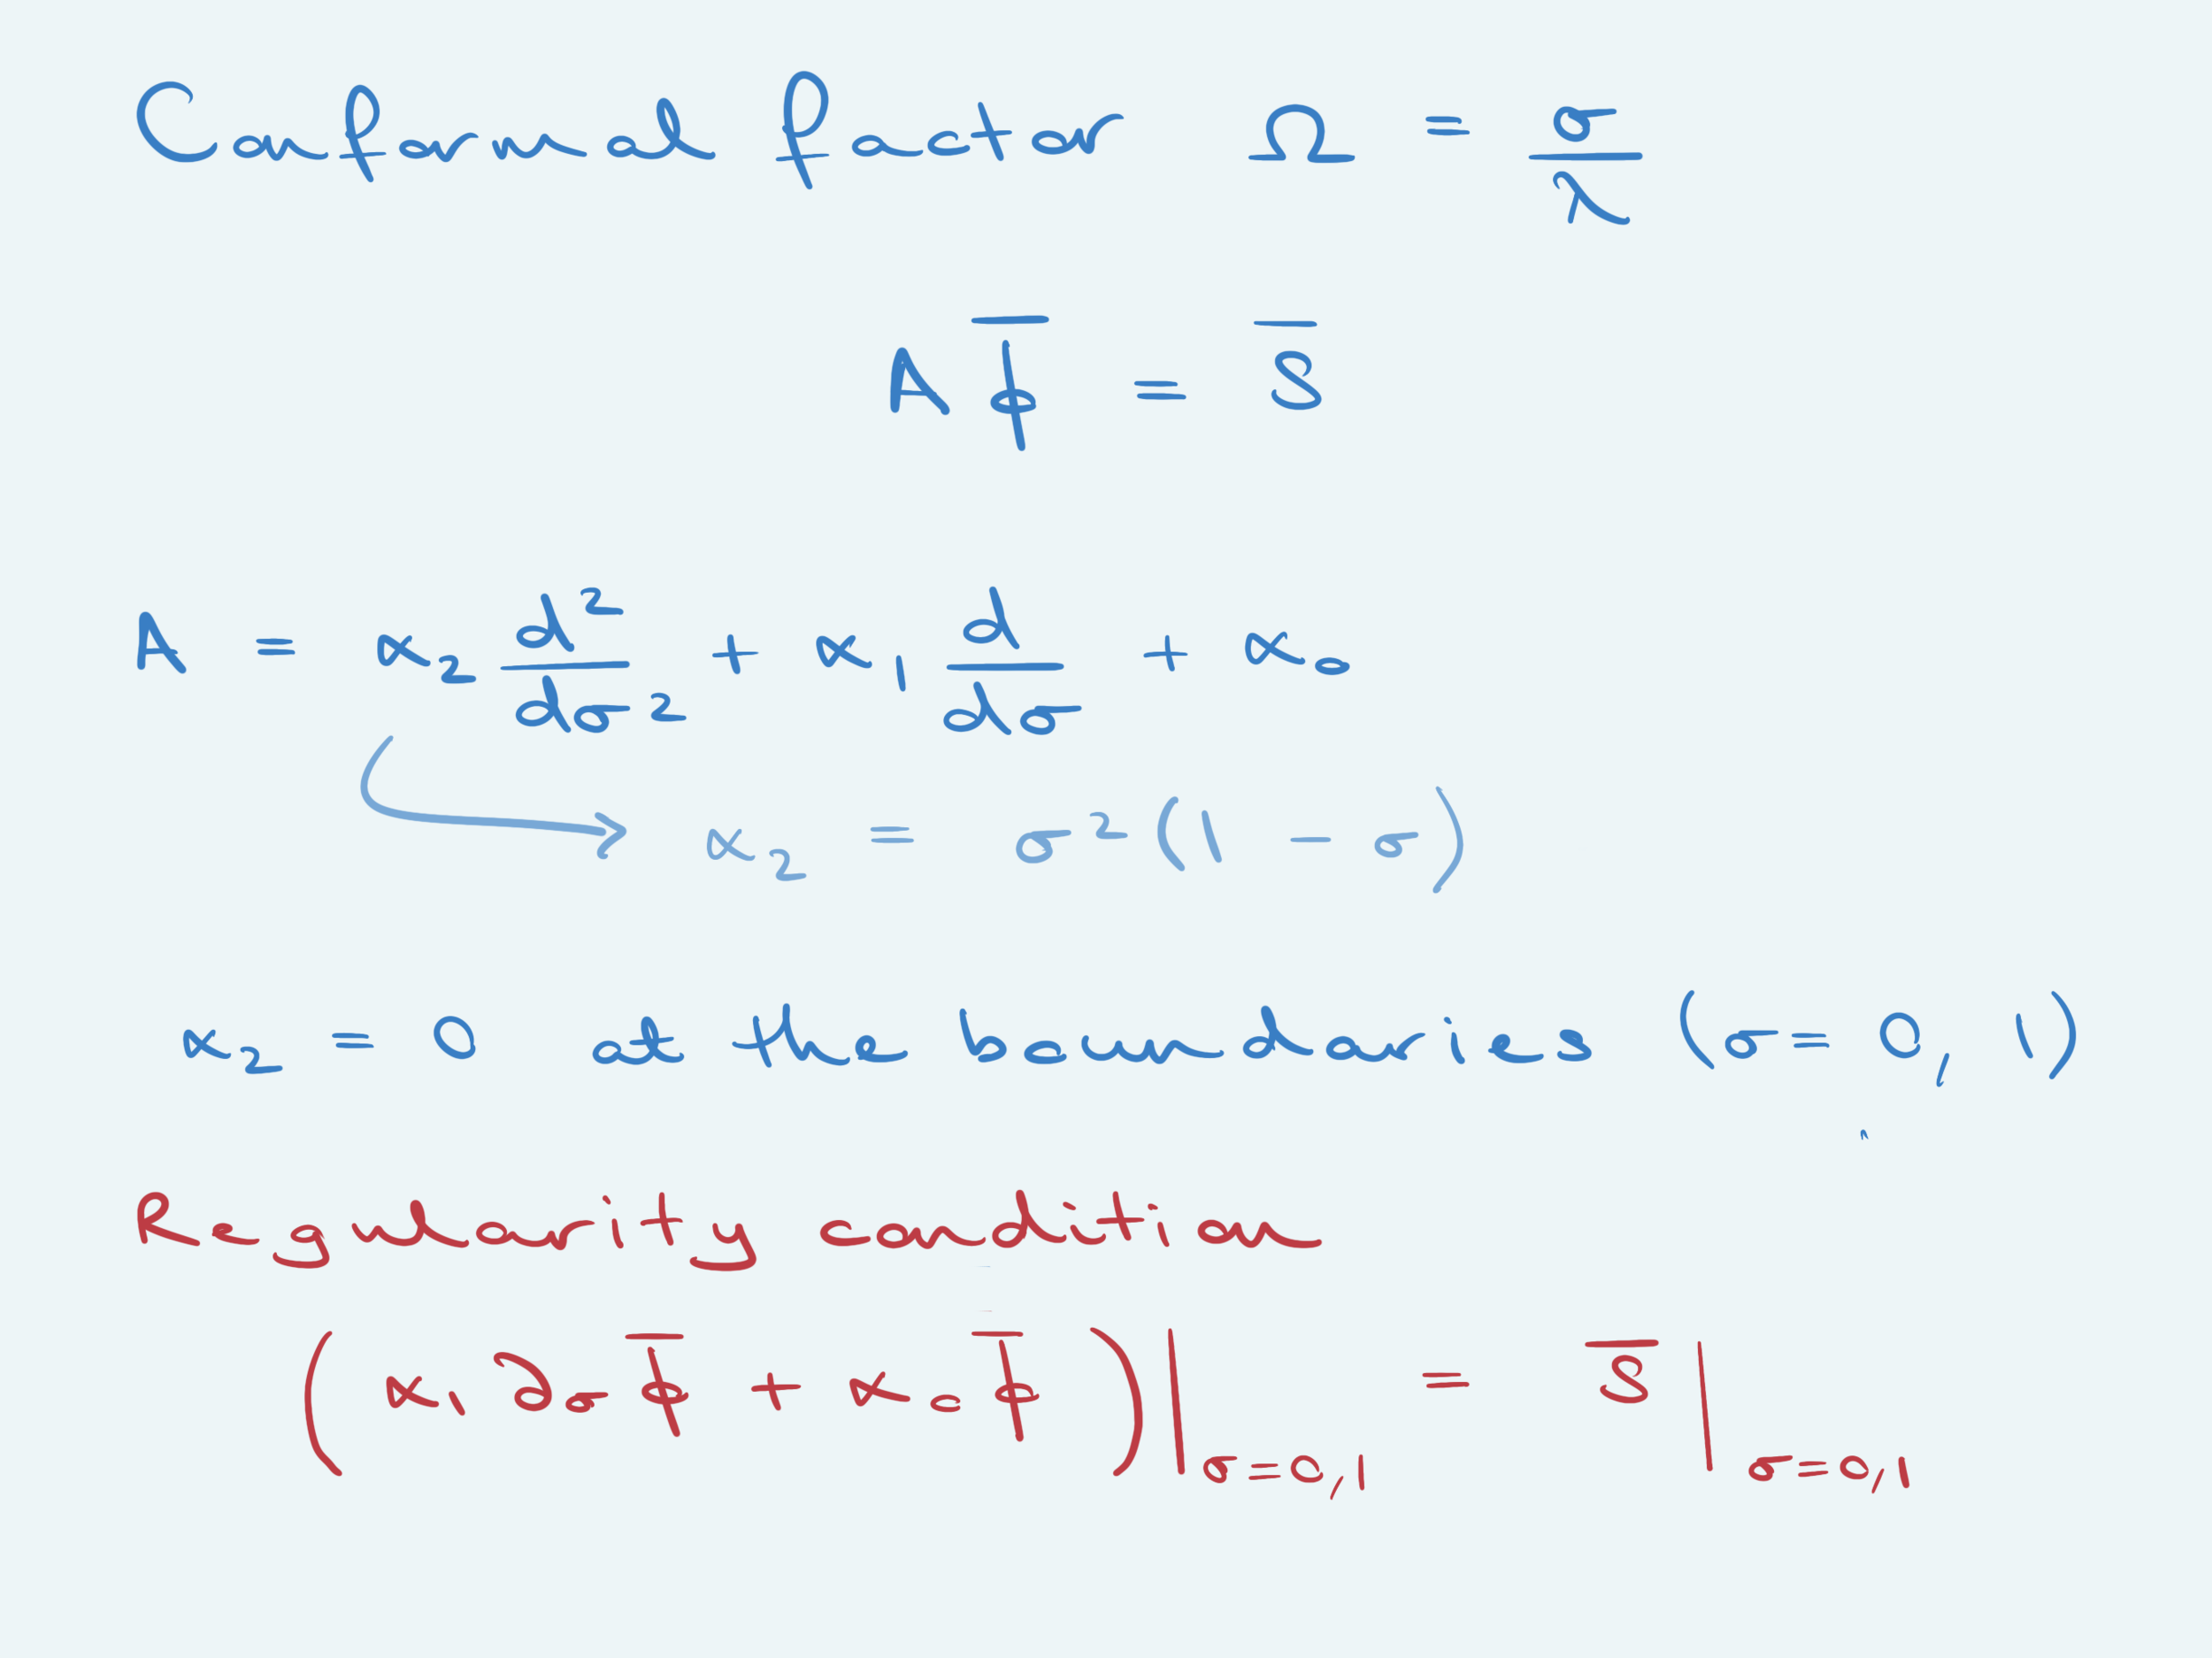 Conformal factor Ω = σ/λ
A ϕ̅ = S̅
A = α₂ d²/dσ² + α₁ d/dσ + α₀
α₂ = σ²(1 − σ)
α₂ = 0 at the boundaries (σ = 0, 1)
Regularity condition
(α₁ ∂σ ϕ̅ + α₀ ϕ̅)|σ=0,1 = S̅|σ=0,1